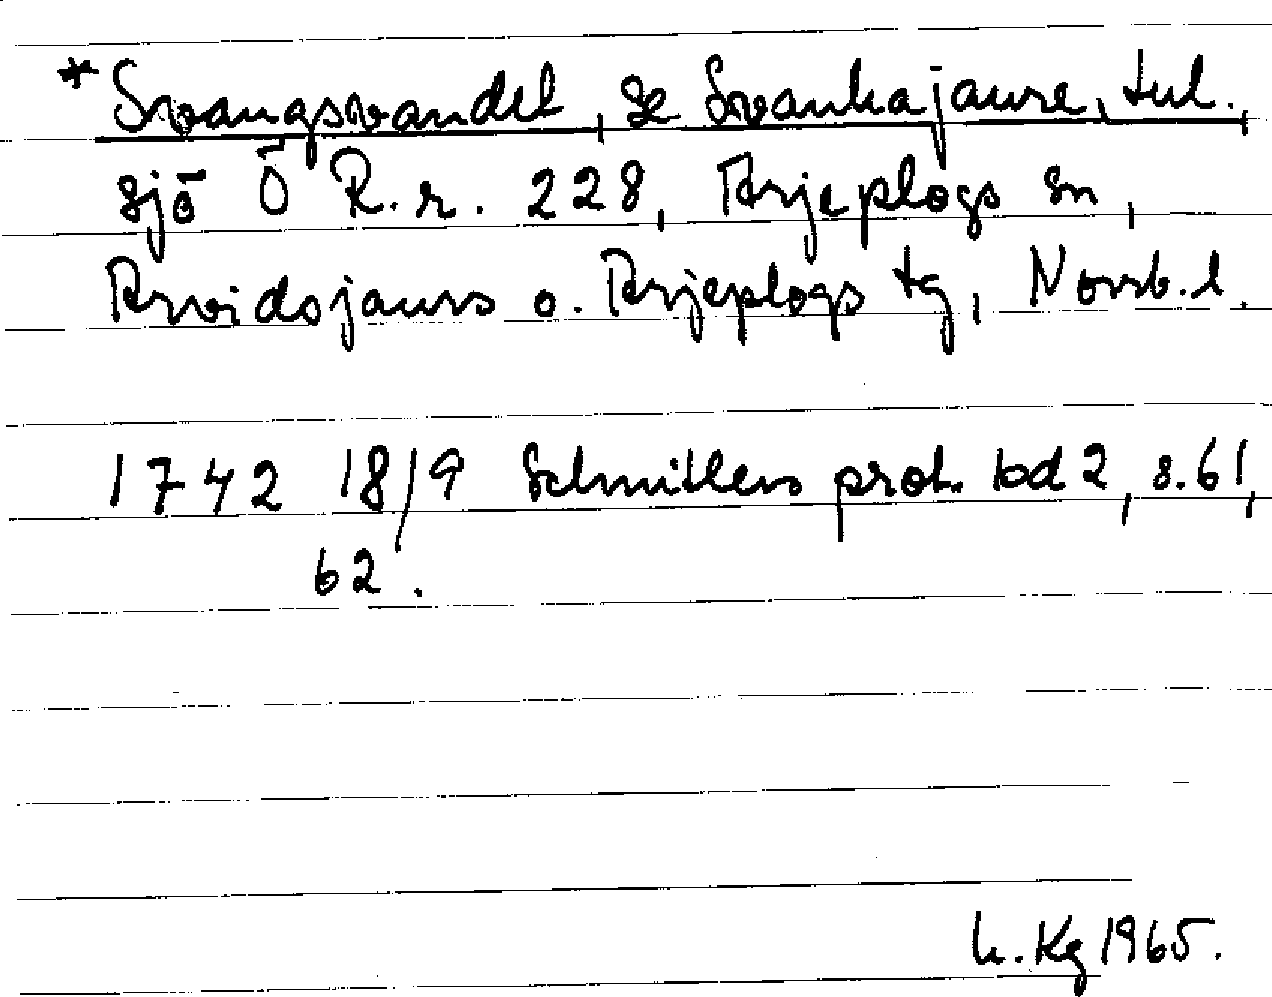 *Svangsvandet, se Svankajaure, tul.,
sjö Ö R.r. 228, Arjeplogs sn,
Arvidsjaurs o. Arjeplogs tg, Norrb.l.
1742 18/9 Schnitlers prot. bd 2, s. 61,
62.
h. Kg 1965.